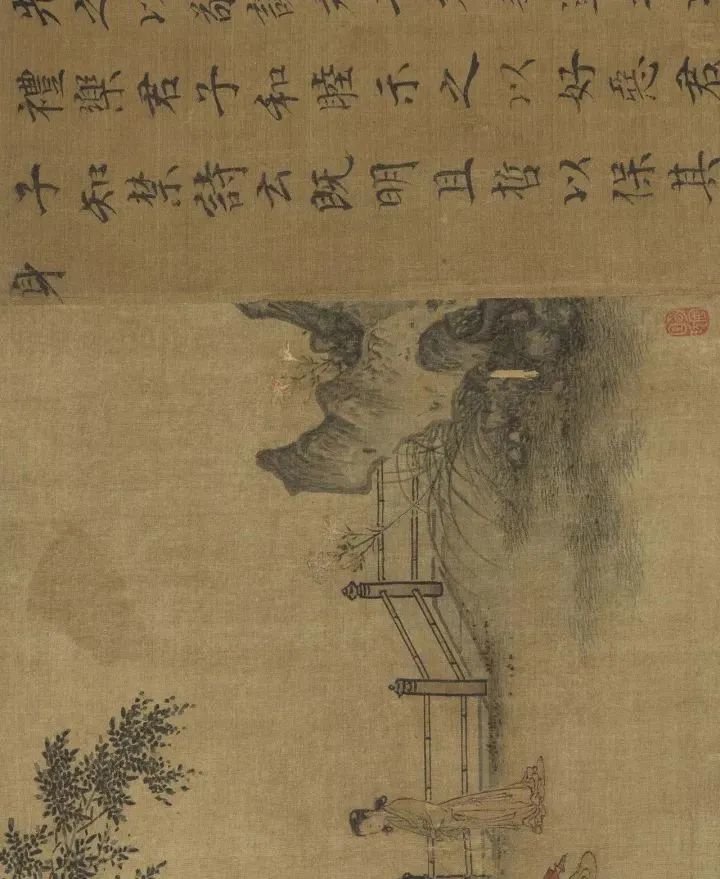 禮樂君子和睦示之以好惡君
子知禁詩云既明且哲以保其
身